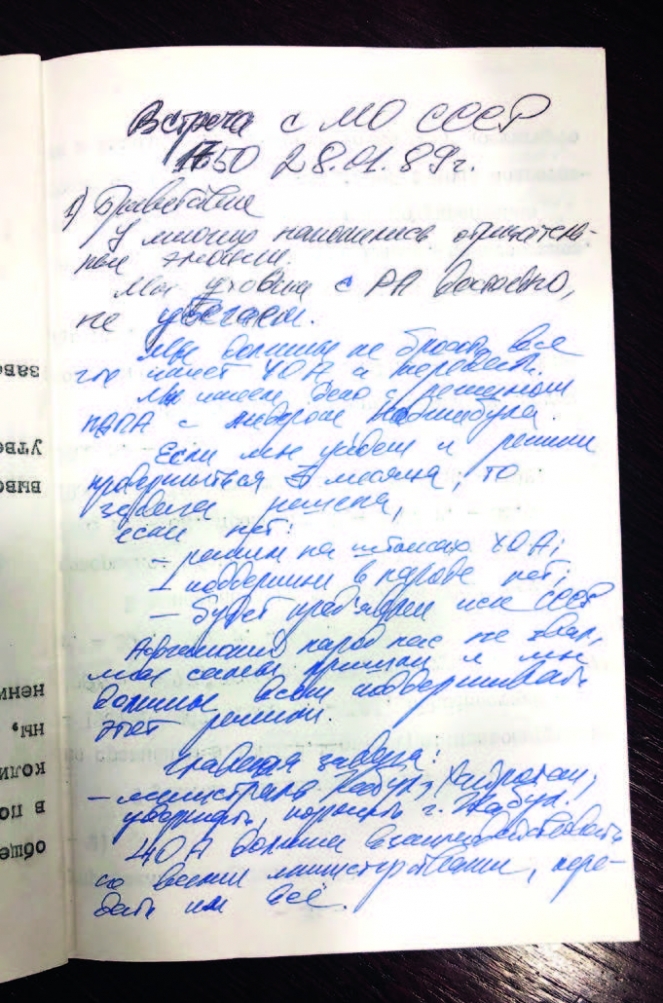 Встреча с МО СССР
1650 28.01.89г.
1) Приветствие
У многих накопились отрицатель-
ные
Мы уходим с РА достойно,
не убегаем.
Мы должны не бросать все
40А и
Мы имеем дело с режимом
НДПА с лидером Наджибула.
Если мы уйдем и режим
продержится месяца, то
задача решена,
если нет:
– режим на штыках 40А;
– поддержки в народе нет;
– будет предъявлен иск СССР
Афганский народ нас не звал,
мы сами пришли и мы
должны всем поддерживать
этот режим.
Главная задача:
– магистраль Кабул, Хайратон,
удержать, кормить г. Кабул.
40А должна взаимодействовать
со всеми министерствами, пере-
дать им всё.
заве
утве
выво
нени
ны,
коли
в по
обще